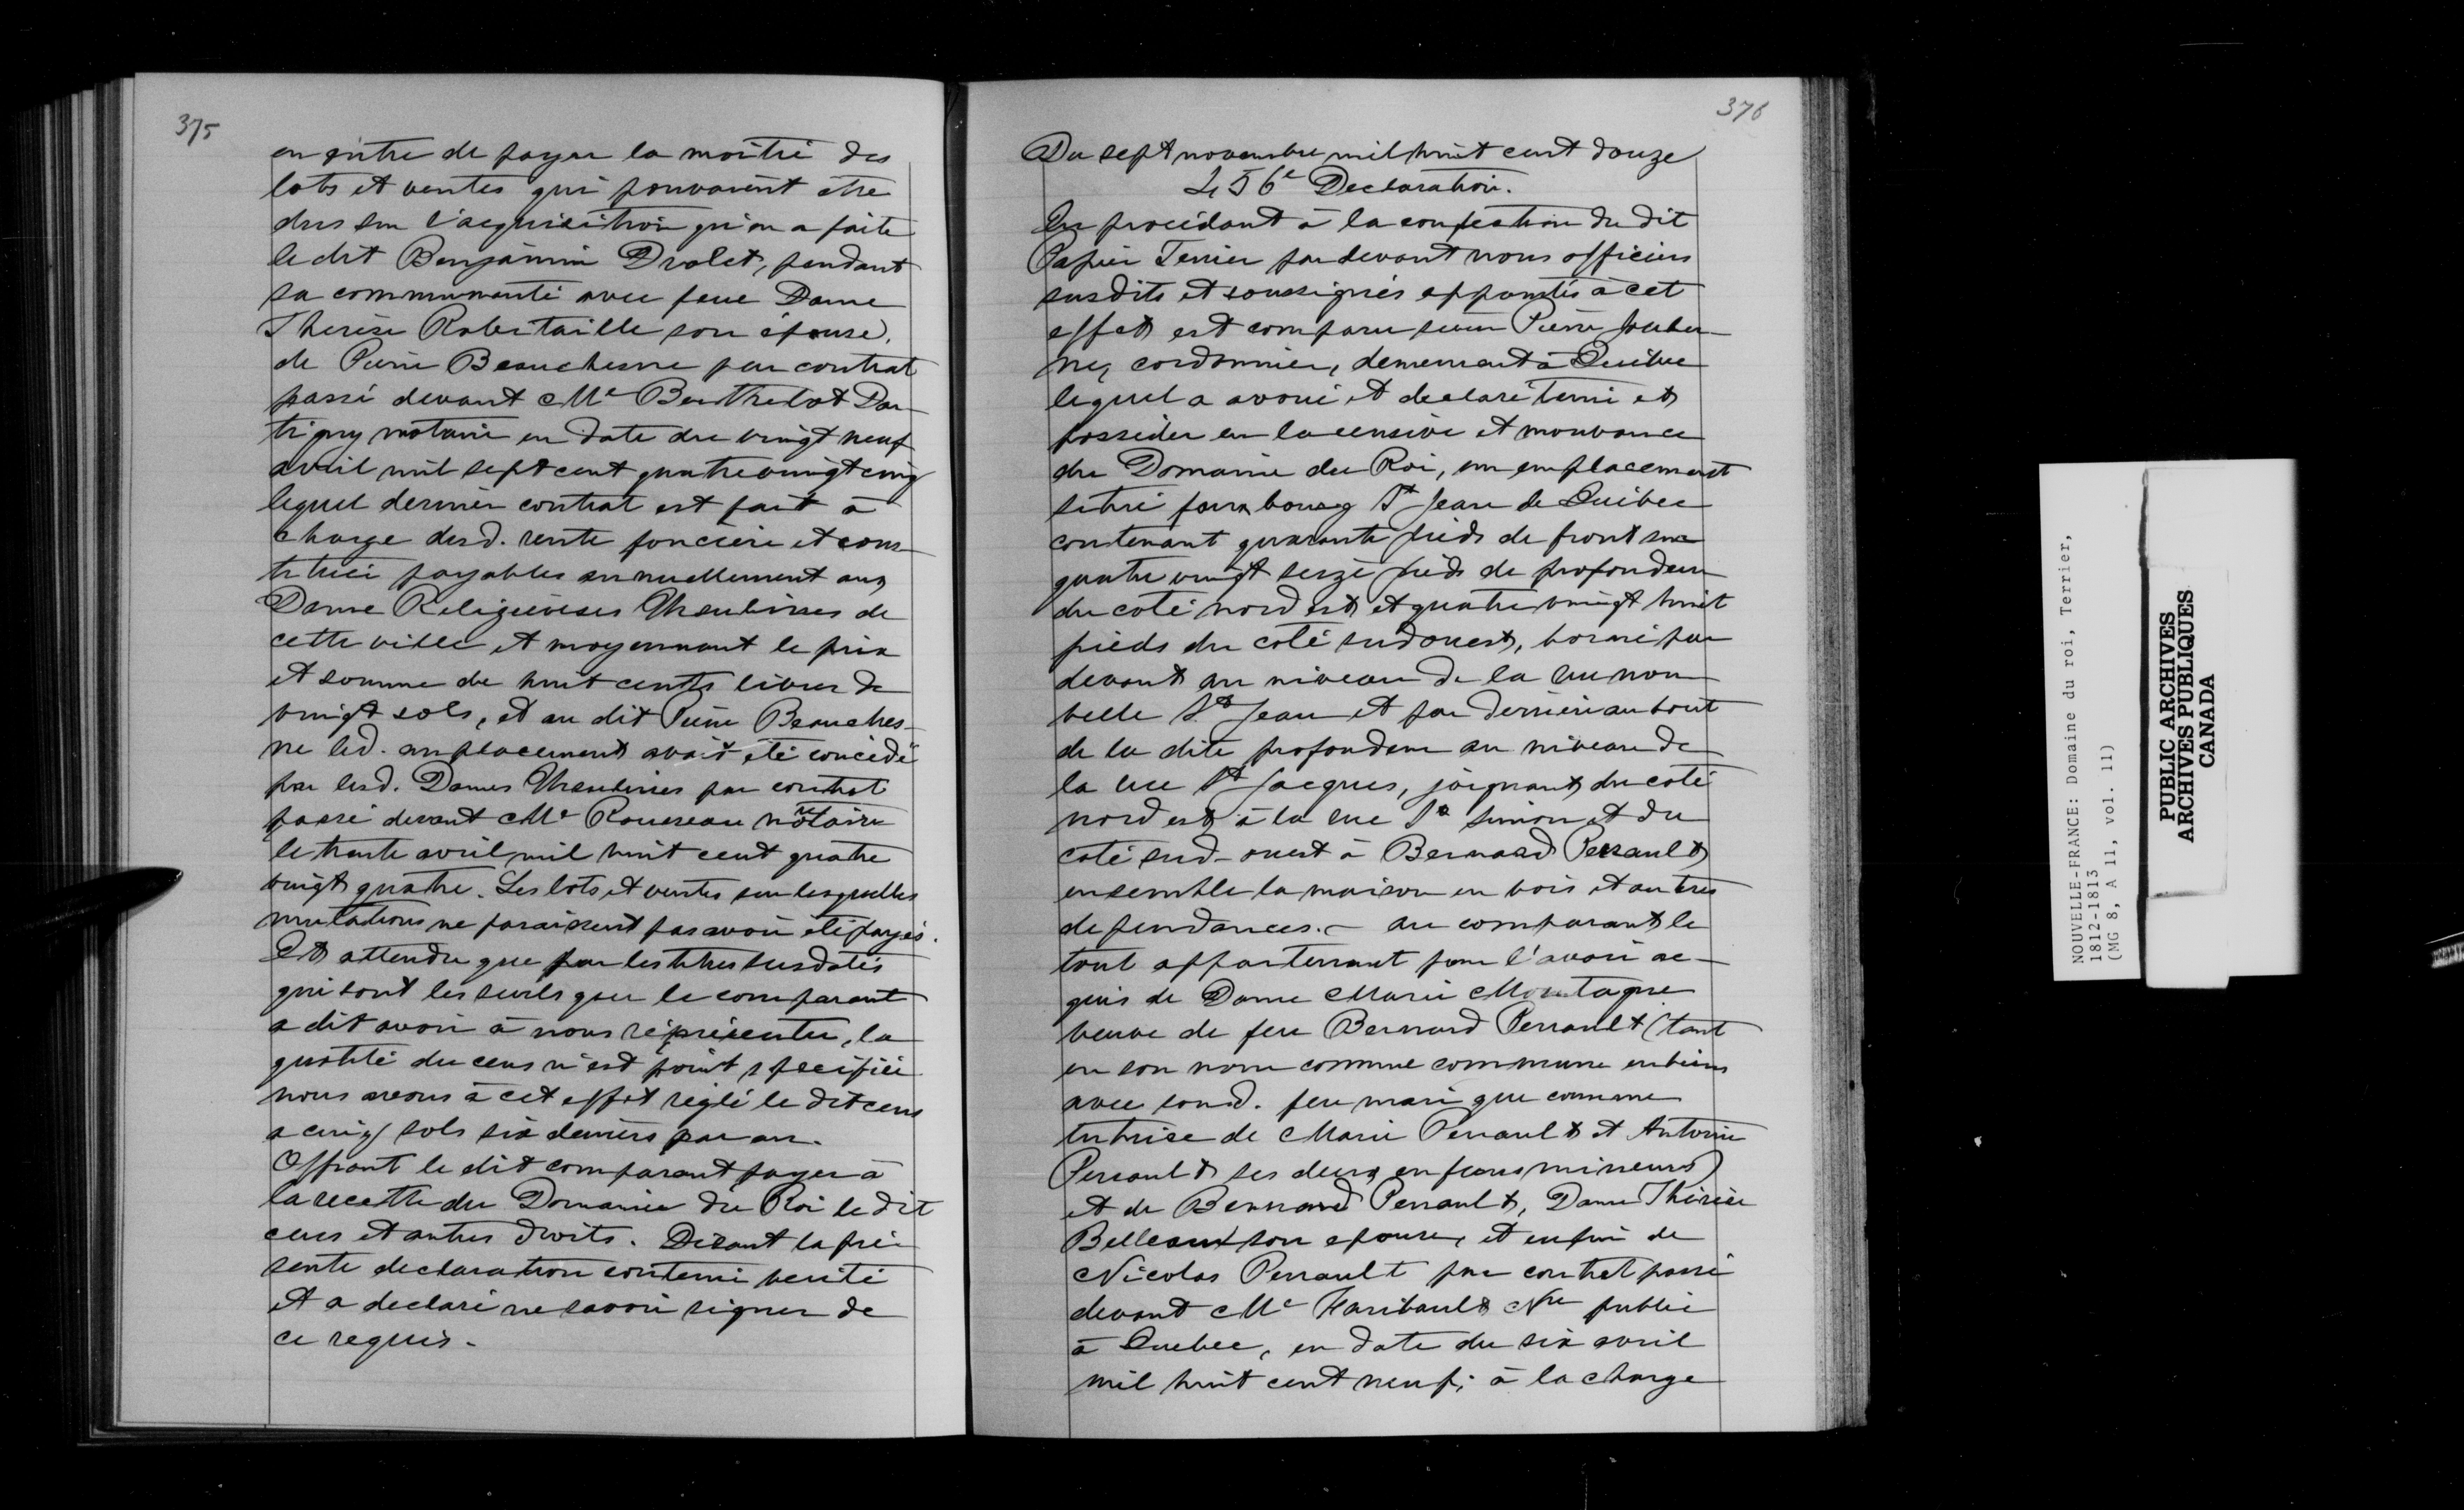 375
en outre de payer la moitié des
lots et ventes qui pouvaient être
dus sur l'acquisition qu'en a faite
le dit Benjamin Drolet, pendant
sa communauté avec feue Dame
Therèse Robitaille son épouse,
de Pierre Beauchesne par contrat
passé devant Me Berthelot Dar-
tigny notaire en date du vingt neuf
avril mil sept cent quatre vingt cinq
lequel dernier contrat est fait à
charge desd. rente foncière et cons-
tituée payables annuellement aux
Dame Religieuses Ursulines de
cette ville et moyennant le prix
et somme de huit cents livres de
vingt sols, et au dit Pierre Beauches-
ne led. emplacement avait été concédé
par lesd. Dames Ursulines par contrat
passé devant Me Rousseau notaire
le trente avril mil huit cent quatre
vingt quatre. Les lots et ventes sur lesquelles
mutations ne paraissent pas avoir été payés.
Et attendu que par les titres susdatés
qui sont les seuls que le comparant
a dit avoir à nous réprésenter, la
quotité du cens n'est point spécifiée
nous avons à cet effet réglé le dit cens
a cinq sols six deniers par an.
Offrant le dit comparant payer à
la recette du Domaine du Roi le dit
cens et autres droits. Disant la pré-
sente declaration contenir verité
et a declaré ne savoir signer de
ce requis.
376
Du sept novembre mil huit cent douze
456e Declaration.
En procédant à la confection du dit
Papier Terrier par devant nous officiers
susdits et soussignés appointés à cet
effet est comparu sieur Pierre
cordonnier, demeurant à Quibec
lequel a avoué et declaré tenir et
posséder en la censive et mouvance
du Domaine du Roi, un emplacement
situé faux bourg St Jean de Quibec
contenant quarante pieds de front sur
quatre vingt seize pieds de profondeur
du coté nord est et quatre vingt huit
pieds du coté sud ouest, borné par
devant au niveau de la rue nou-
velle St Jean et par derrière au bout
de la dite profondeur au niveau de
la rue St Jacques, joignant du coté
nord est à la rue St Simon et du
coté sud-ouest à Bernard Perrault
ensemble la maison en bois et autres
dependances. - au comparant le
tout appartenant pour l'avoir ac-
quis de Dame Marie Montagne
veuve de feu Bernard Perrault (tant
en son nom comme commune en biens
avec sond. feu mari que comme
tutrice de Marie Perrault et Antoine
Perrault ses deux enfans mineurs)
et de Bernard Perrault, Dame Thérèse
Belleau son epouse, et enfin de
Nicolas Perrault par contrat passé
devant Me Faribault Nre public
à Quebec, en date du six avril
mil huit cent neuf; à la charge
NOUVELLE-FRANCE: Domaine du roi, Terrier,
1812-1813
(MG 8, A 11, vol. 11)
PUBLIC ARCHIVES
ARCHIVES PUBLIQUES
CANADA